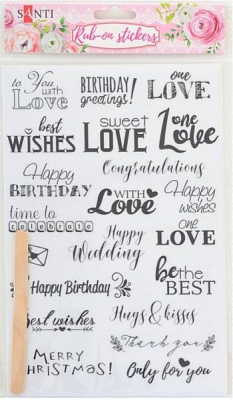 SANTI
Rub-on stickers
to You
with
Love
BIRTHDAY
greetings!
one
LOVE
best
WISHES
sweet
LOVE
One
Love
Congratulations
Happy
BIRTHDAY
WITH
Love
Happy
wishes
time to
celebrate
one
LOVE
Happy
Wedding
be the
BEST
Happy Birthday
best wishes
Hugs & kisses
Thank you
MERRY
CHRISTMAS!
Only for you